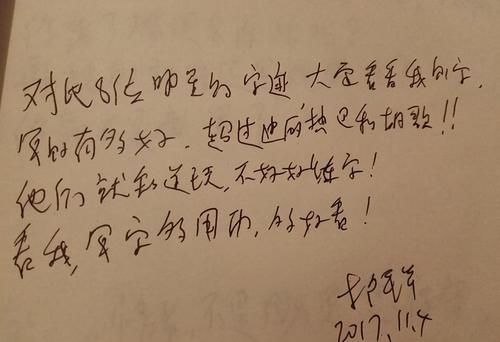 对比8位明星的字迹 大家看看我的字,
写的有多好. 超过迪丽热巴和胡歌!!
他们就知道玩, 不好好练字!
看我, 写字多用功, 多好看!
2017.11.4